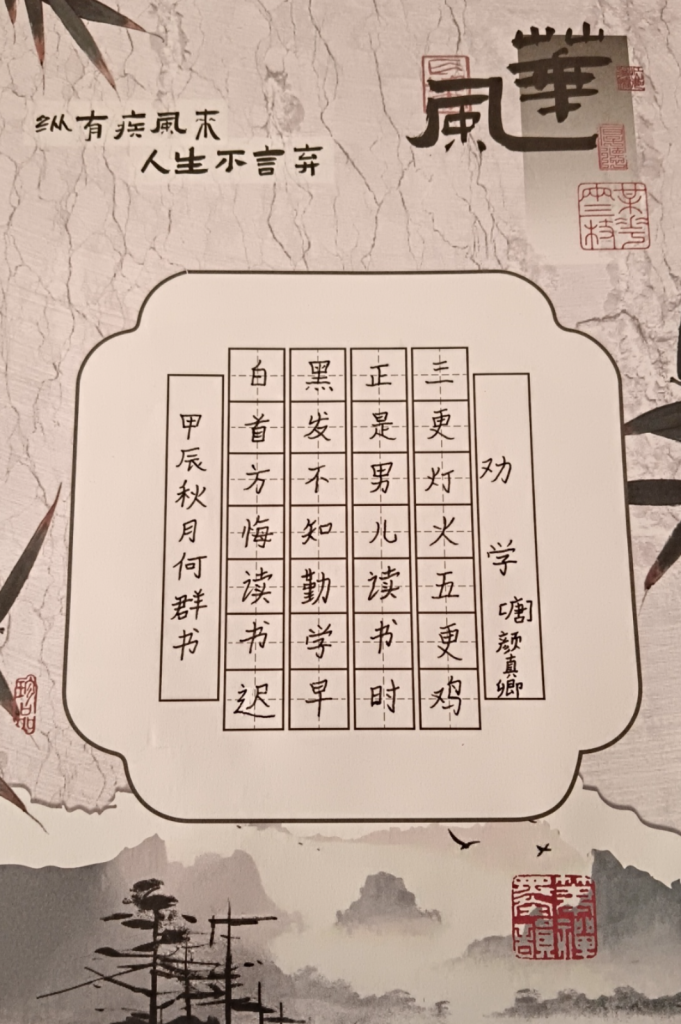 華風
纵有疾風来
人生不言弃
某花
齐枝
劝学 [唐]颜真卿
三更灯火五更鸡
正是男儿读书时
黑发不知勤学早
白首方悔读书迟
甲辰秋月何群书